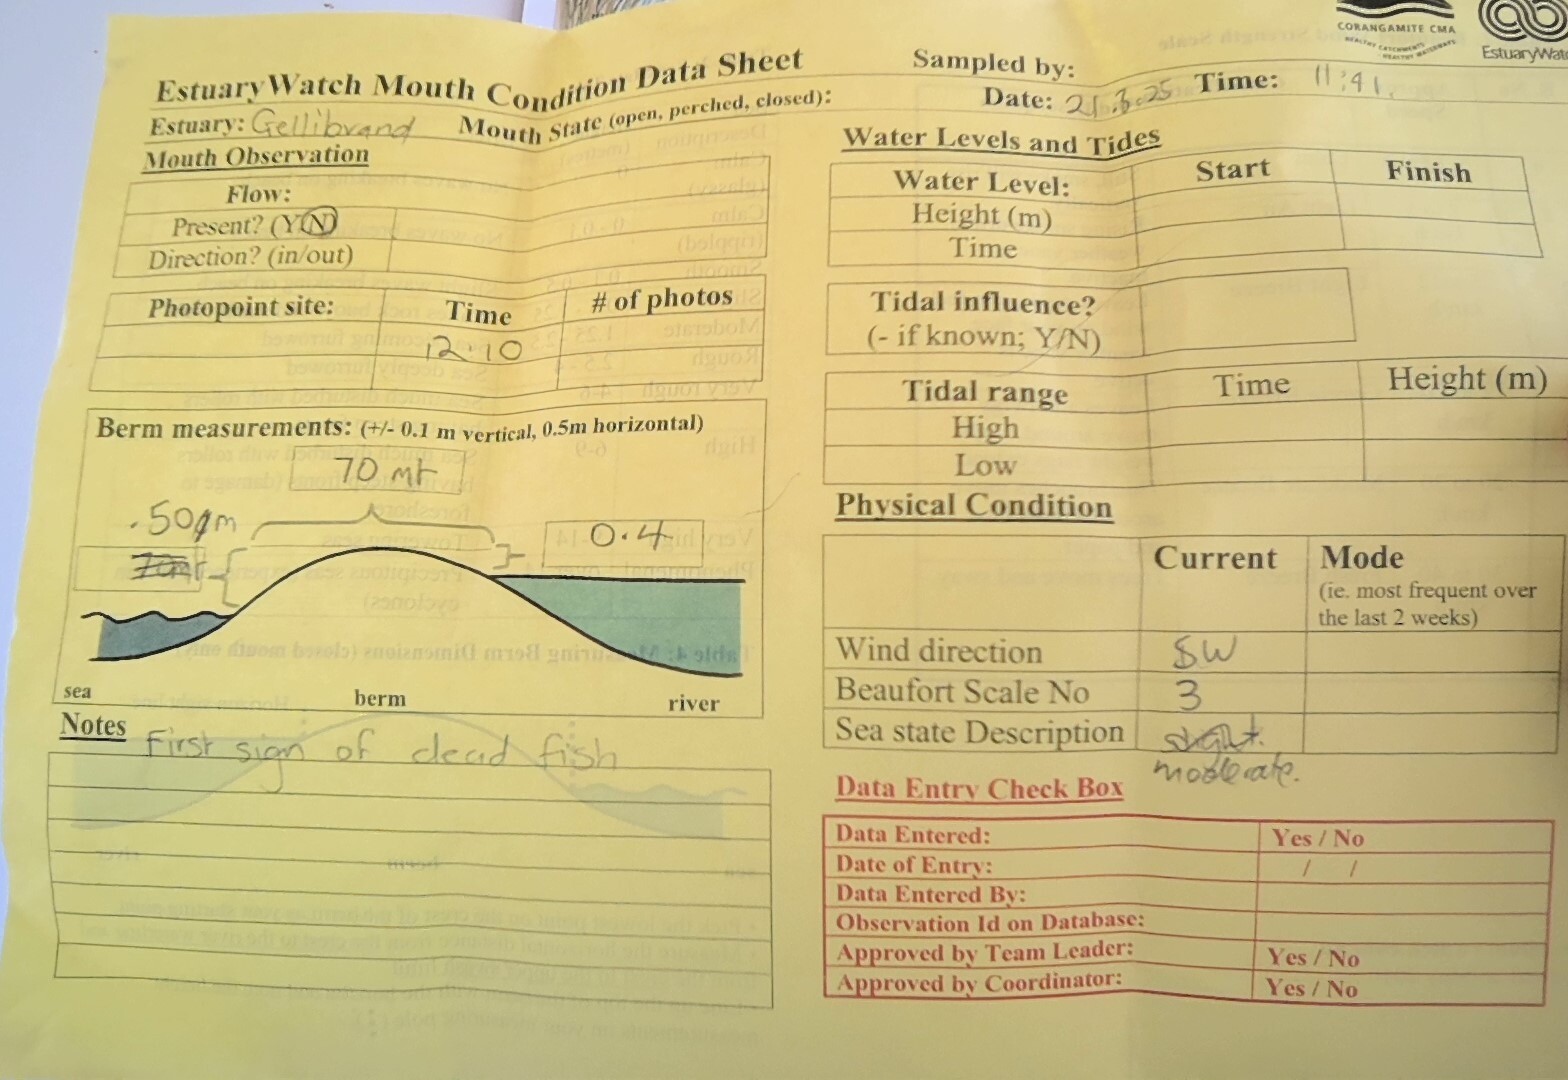 CORANGAMITE CMA
HEALTHY CATCHMENTS
HEALTHY WATERWAYS
EstuaryWat
EstuaryWatch Mouth Condition Data Sheet
Sampled by:
Date: 21.3.25 Time: 11:41.
Estuary: Gellibrand Mouth State (open, perched, closed):
Mouth Observation
Flow:
Present? (Y/N)
Direction? (in/out)
Photopoint site: Time # of photos
12.10
Berm measurements: (+/- 0.1 m vertical, 0.5m horizontal)
70 mt
.50m
0.4
sea berm river
Notes
First sign of dead fish
Water Levels and Tides
Water Level: Start Finish
Height (m)
Time
Tidal influence?
(- if known; Y/N)
Tidal range Time Height (m)
High
Low
Physical Condition
Current Mode
(ie. most frequent over
the last 2 weeks)
Wind direction SW
Beaufort Scale No 3
Sea state Description slight.
moderate.
Data Entry Check Box
Data Entered: Yes / No
Date of Entry: / /
Data Entered By:
Observation Id on Database:
Approved by Team Leader: Yes / No
Approved by Coordinator: Yes / No